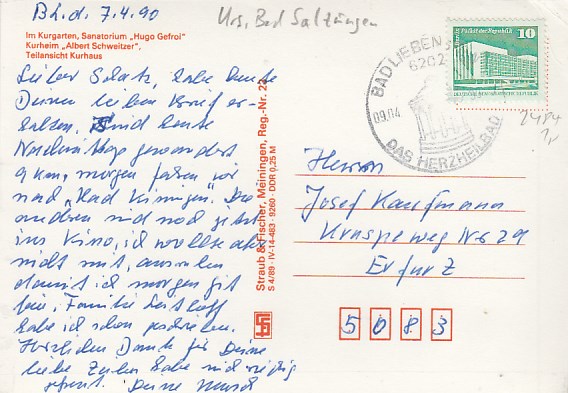 Bh.d. 7.4.90
Urs. Bad Salzungen
Im Kurgarten, Sanatorium „Hugo Gefroi"
Kurheim „Albert Schweitzer",
Teilansicht Kurhaus
Lieber Schatz, habe heute
Deinen lieben Brief er-
halten. Sind heute
Nachmittag gewandert
9 km, morgen fahren wir
nach „Bad Kissingen". Die
anderen sind noch jetzt
ins Kino, ich wollte aber
nicht mit,
damit ich morgen fit
bin, Familie
habe ich schon geschrieben.
Herzlichen Dank für Deine
liebe Zeilen habe mich riesig
gefreut. Deine
Straub & Fischer, Meiningen, Reg.-Nr. 22
S 4/89 · IV-14-483 · 9260 · DDR 0,25 M
BAD LIEBEN
6202
09.04
DAS HERZHEILBAD
Berlin, Palast der Republik
10
2484
1,-
Herrn
Josef Kaufmann
Knaspeweg Nr. 29
Erfurt
5083